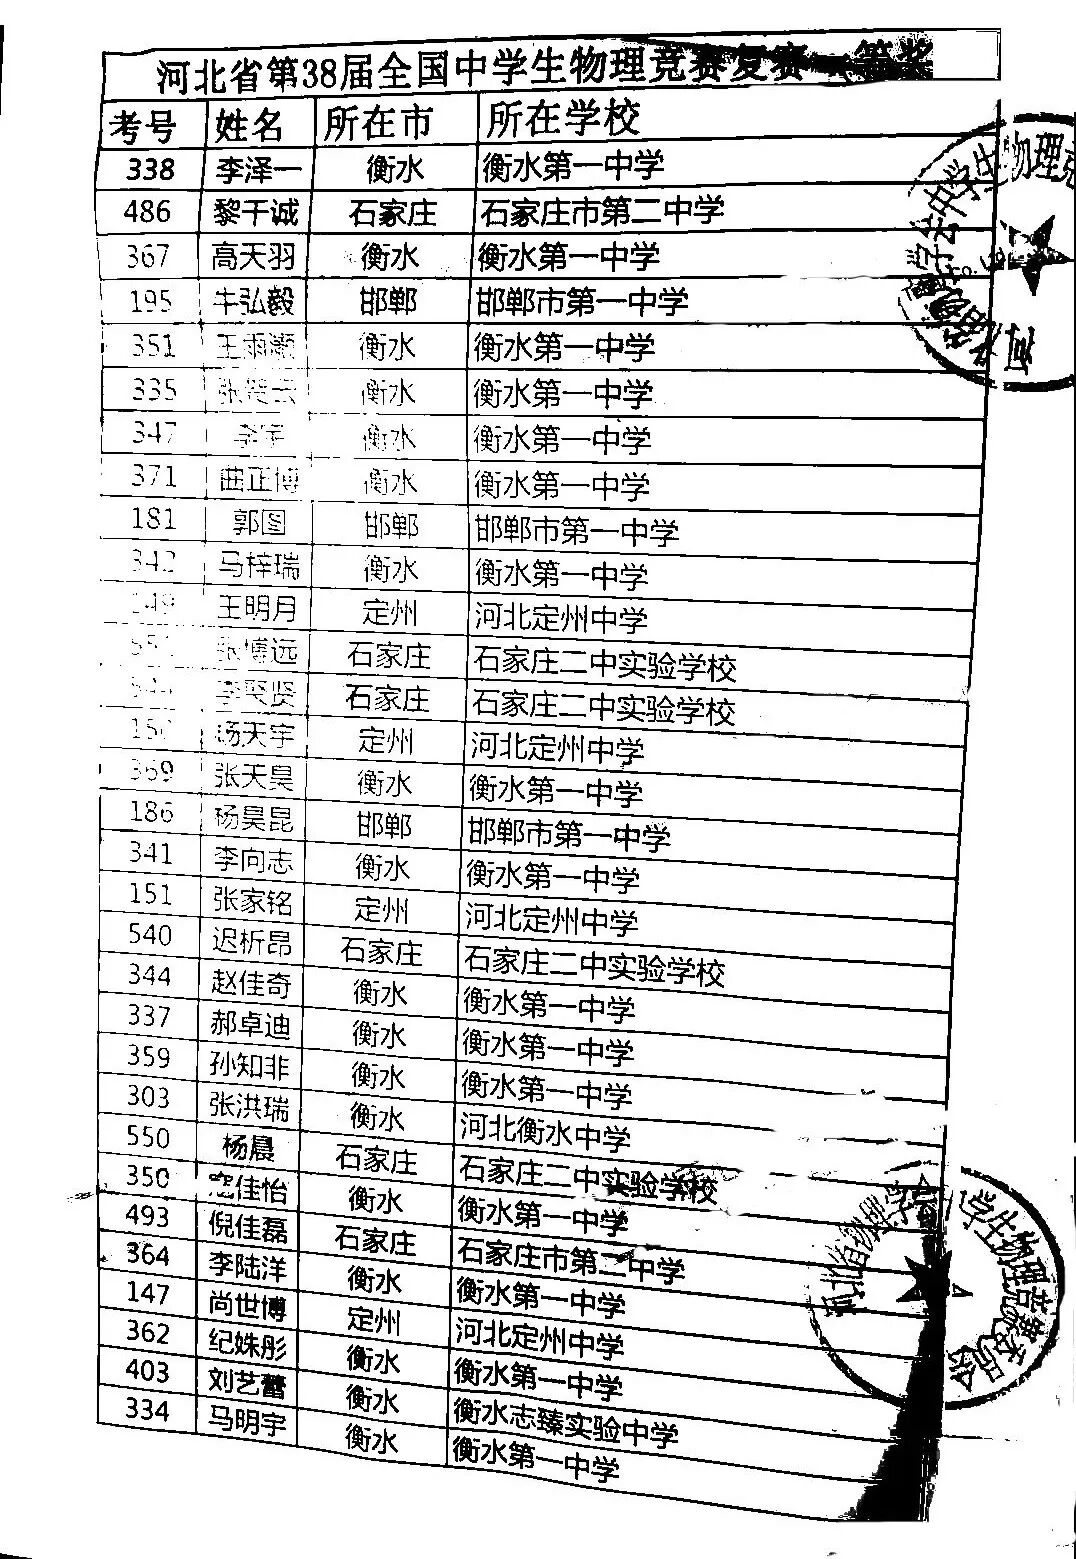 河北省第38届全国中学生物理竞赛复赛一等奖
考号 姓名 所在市 所在学校
338 李泽一 衡水 衡水第一中学
486 黎千诚 石家庄 石家庄市第二中学
367 高天羽 衡水 衡水第一中学
195 牛弘毅 邯郸 邯郸市第一中学
351 王雨灏 衡水 衡水第一中学
335 衡水 衡水第一中学
347 衡水 衡水第一中学
371 曲正博 衡水 衡水第一中学
181 郭图 邯郸 邯郸市第一中学
342 马梓瑞 衡水 衡水第一中学
149 王明月 定州 河北定州中学
张博远 石家庄 石家庄二中实验学校
石家庄 石家庄二中实验学校
杨天宇 定州 河北定州中学
369 张天昊 衡水 衡水第一中学
186 杨昊昆 邯郸 邯郸市第一中学
341 李向志 衡水 衡水第一中学
151 张家铭 定州 河北定州中学
540 迟析昂 石家庄 石家庄二中实验学校
344 赵佳奇 衡水 衡水第一中学
337 郝卓迪 衡水 衡水第一中学
359 孙知非 衡水 衡水第一中学
303 张洪瑞 衡水 河北衡水中学
550 杨晨 石家庄 石家庄二中实验学校
350 寇佳怡 衡水 衡水第一中学
493 倪佳磊 石家庄 石家庄市第二中学
364 李陆洋 衡水 衡水第一中学
147 尚世博 定州 河北定州中学
362 纪姝彤 衡水 衡水第一中学
403 刘艺蕾 衡水 衡水志臻实验中学
334 马明宇 衡水 衡水第一中学